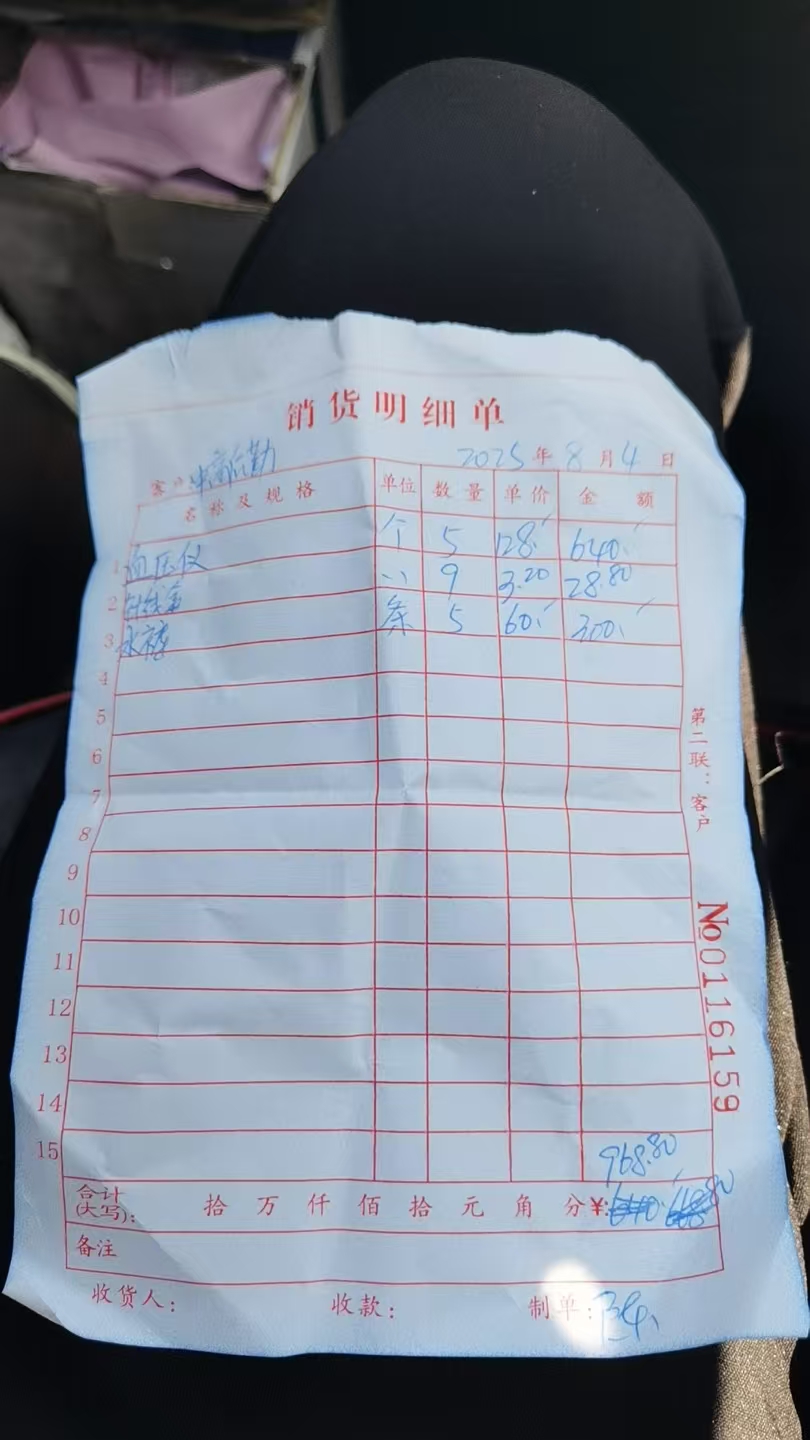 销货明细单
客户 中商后勤 2025年8月4日
名称及规格 单位 数量 单价 金额
1 血压仪 个 5 128. 640.
2 针线盒 〃 9 3.20 28.80
3 条 5 60. 300.
4
5
6
7
8
9
10
11
12
13
14
15
968.80
合计(大写): 拾 万 仟 佰 拾 元 角 分 ¥:
备注
收货人: 收款: 制单:
第二联:客户
№0116159